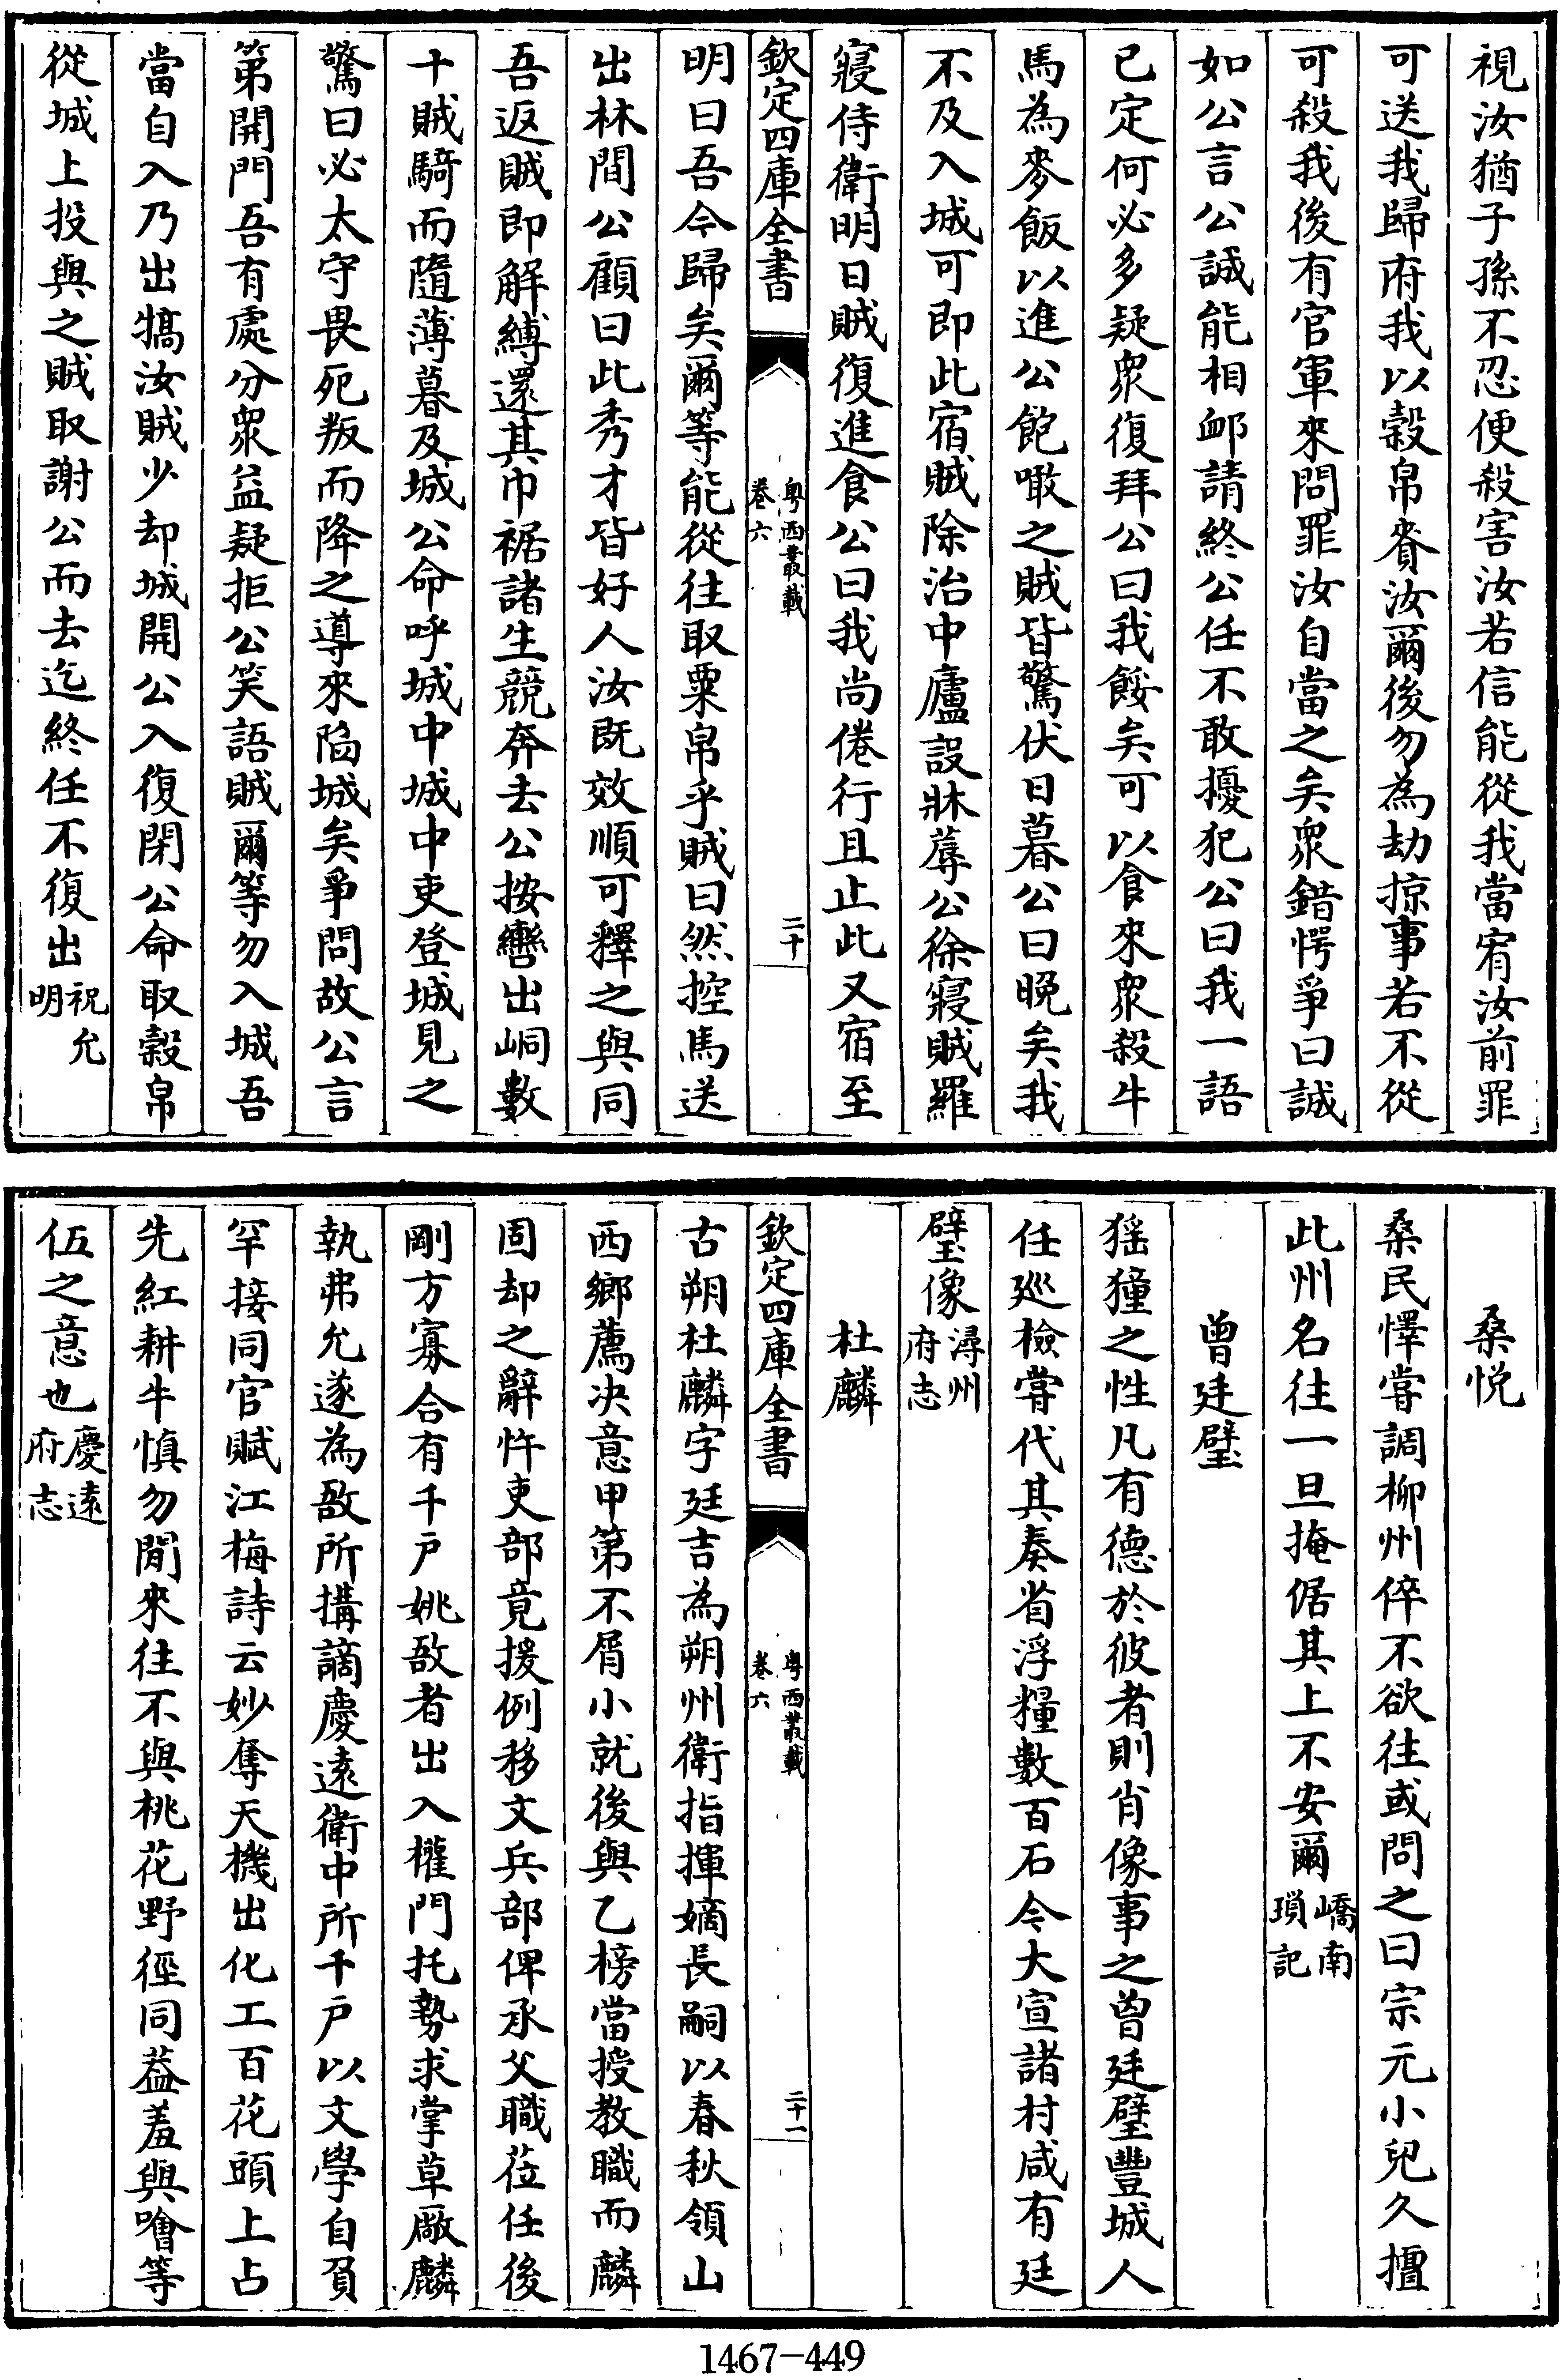 視汝猶子孫不忍便殺害汝若信能從我當宥汝前罪
可送我歸府我以穀帛賚汝爾後勿為劫掠事若不從
可殺我後有官軍來問罪汝自當之矣衆錯愕爭曰誠
如公言公誠能相䘏請終公任不敢擾犯公曰我一語
已定何必多疑衆復拜公曰我餒矣可以食來衆殺牛
馬為麥飯以進公飽噉之賊皆驚伏日暮公曰晚矣我
不及入城可即此宿賊除治中廬設牀蓐公徐寢賊羅
寢侍衛明日賊復進食公曰我尚倦行且止此又宿至
欽定四庫全書
粤西叢載
卷六
二十
明日吾今歸矣爾等能從往取粟帛乎賊曰然控馬送
出林間公顧曰此秀才皆好人汝既效順可釋之與同
吾返賊即解縛還其巾裾諸生競奔去公按轡出峒數
十賊騎而隨薄暮及城公命呼城中城中吏登城見之
驚曰必太守畏死叛而降之導來陷城矣爭問故公言
第開門吾有處分衆益疑拒公笑語賊爾等勿入城吾
當自入乃出犒汝賊少却城開公入復閉公命取穀帛
從城上投與之賊取謝公而去迄終任不復出祝允
明
桑悦
桑民懌嘗調柳州倅不欲往或問之曰宗元小兒久擅
此州名往一旦掩倨其上不安爾嶠南
瑣記
曾廷璧
猺獞之性凡有德於彼者則肖像事之曾廷璧豐城人
任廵檢嘗代其奏省浮糧數百石今大宣諸村咸有廷
璧像潯州
府志
杜麟
欽定四庫全書
粤西叢載
卷六
二十一
古朔杜麟字廷吉為朔州衛指揮嫡長嗣以春秋領山
西鄉薦决意甲第不屑小就後與乙榜當授教職而麟
固却之辭忤吏部竟援例移文兵部俾承父職莅任後
剛方寡合有千户姚敔者出入權門托勢求掌草廠麟
執弗允遂為敔所搆謫慶遠衛中所千户以文學自負
罕接同官賦江梅詩云妙奪天機出化工百花頭上占
先紅耕牛慎勿閒來往不與桃花野徑同葢羞與噲等
伍之意也慶遠
府志
1467-449